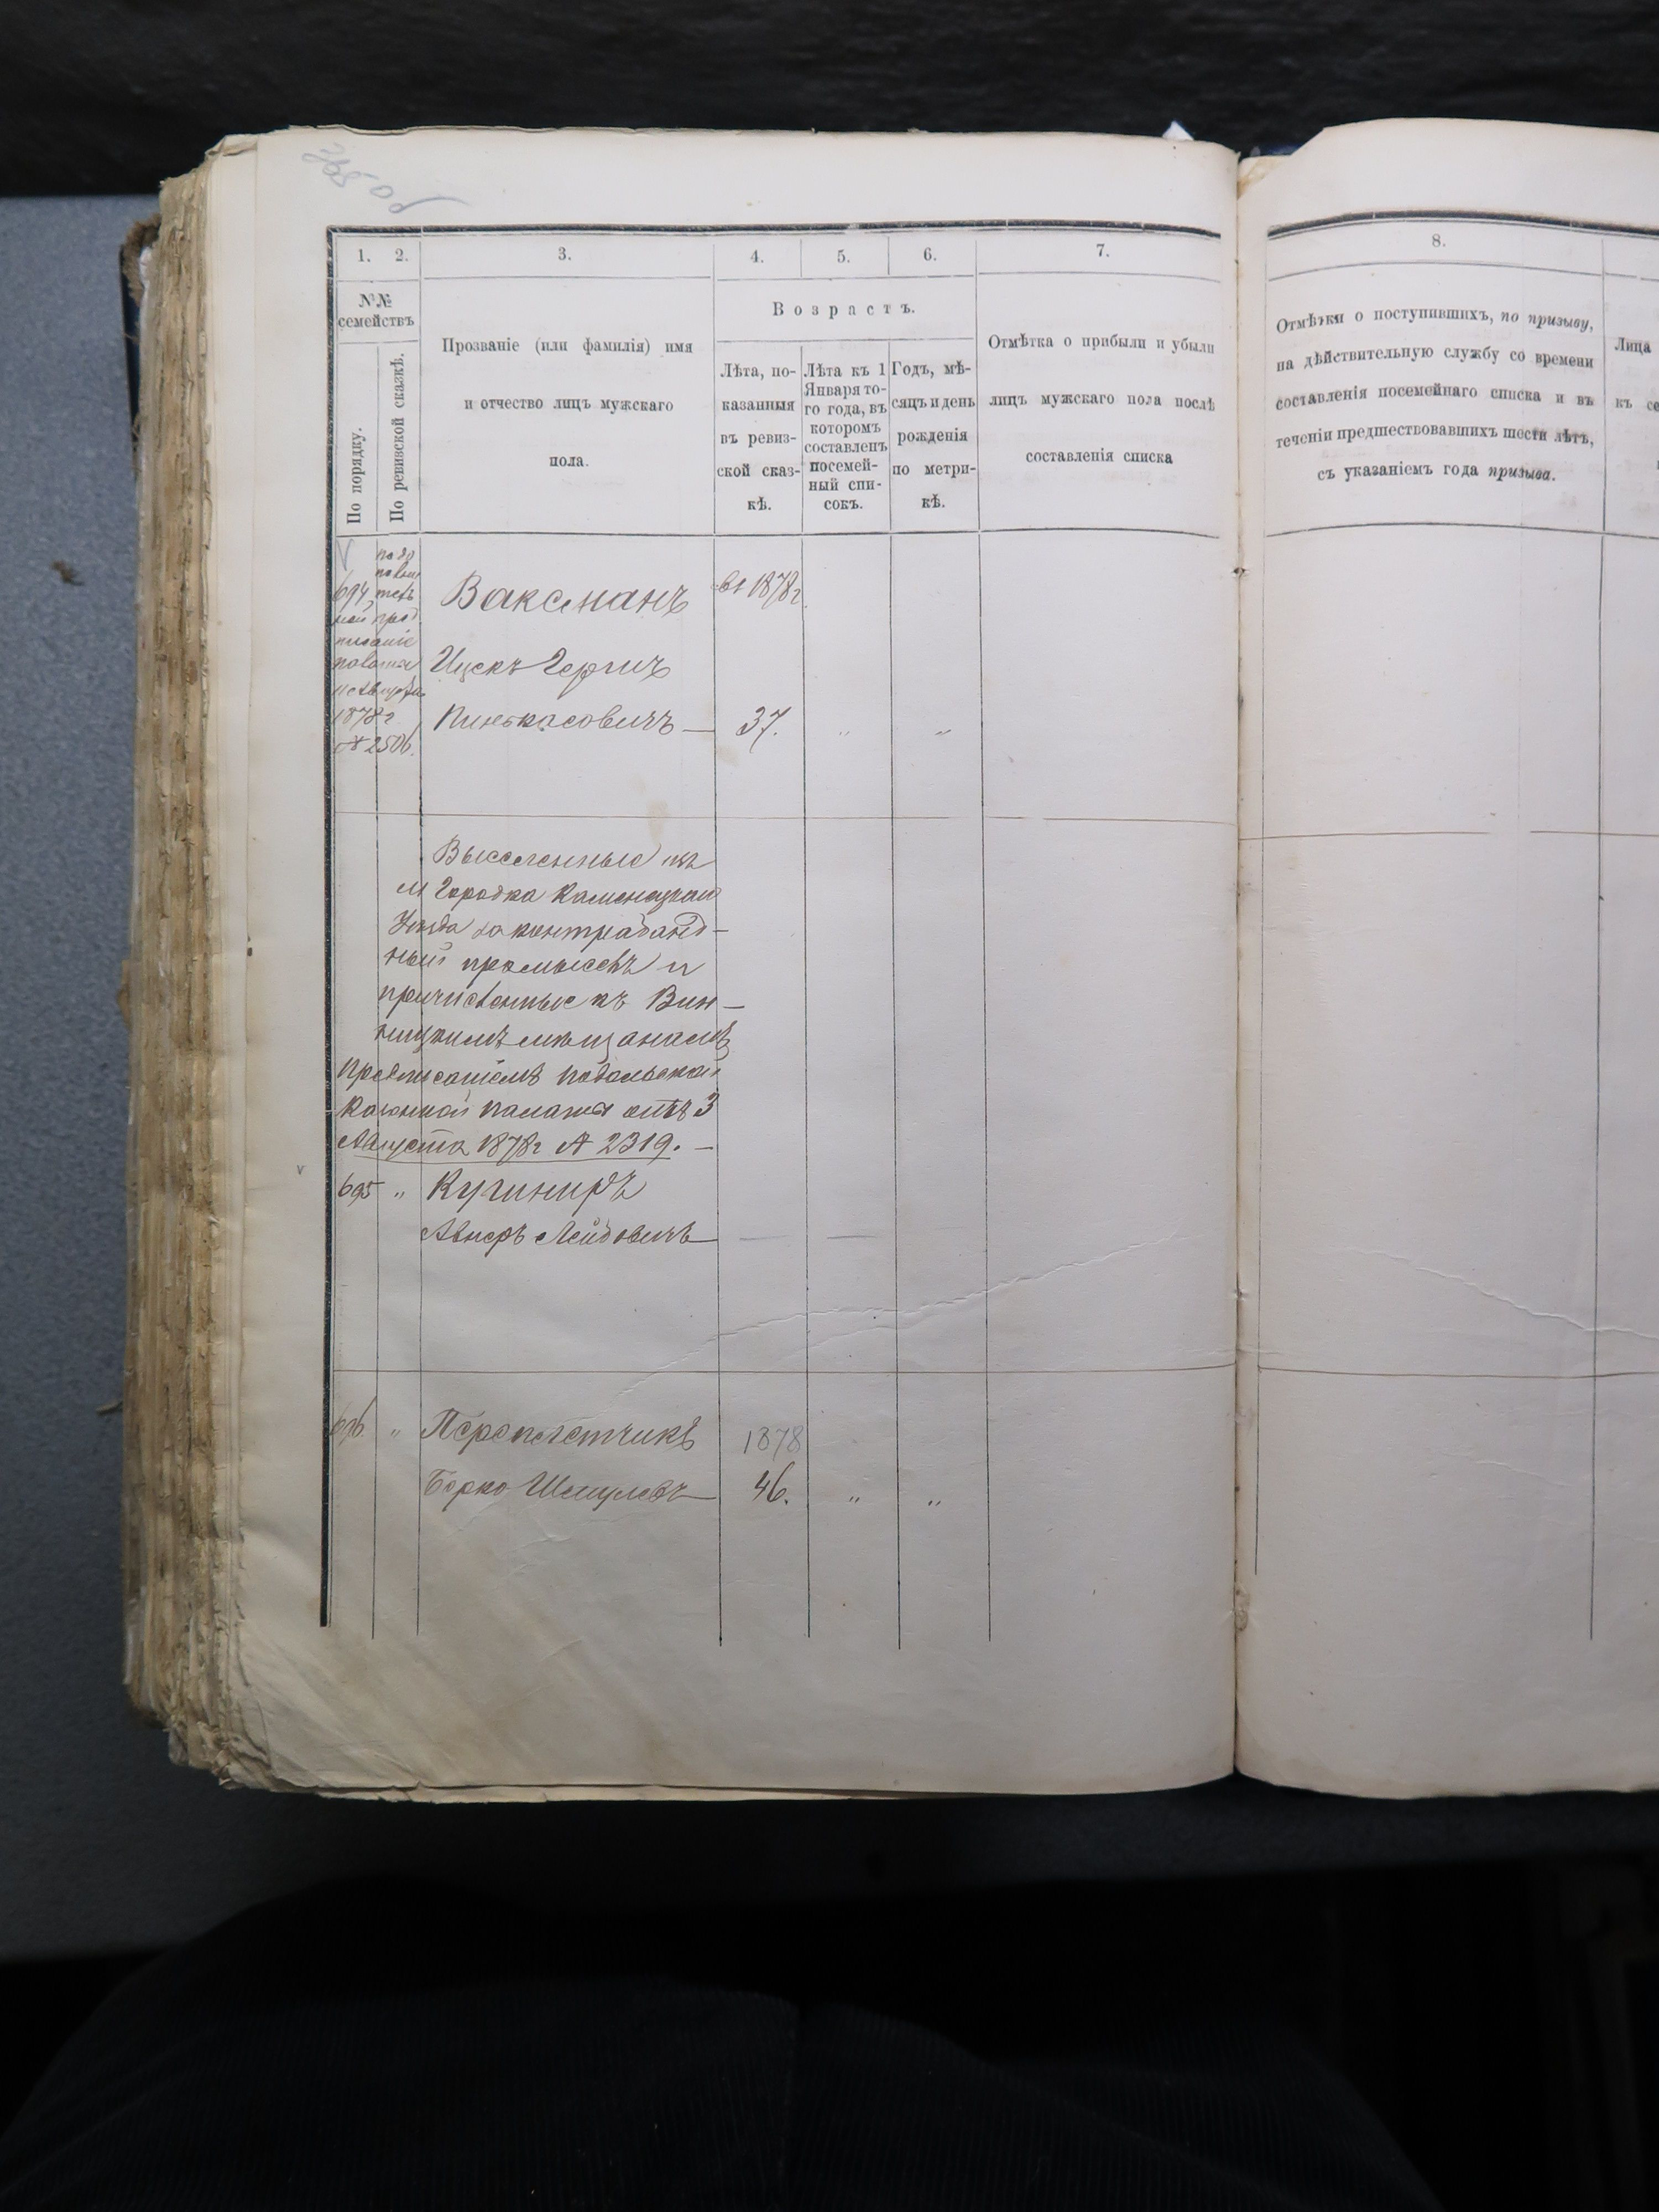 1. 2. 3. 4. 5. 6. 7.
№№ семействъ
По порядку.
По ревизской сказкѣ.
Прозваніе (или фамилія) имя
и отчество лицъ мужскаго
пола.
Возрастъ.
Лѣта, по-
казанныя
въ ревиз-
ской сказ-
кѣ.
Лѣта къ 1
Января то-
го года, въ
которомъ
составленъ
посемей-
ный спи-
сокъ.
Годъ, мѣ-
сяцъ и день
рожденія
по метри-
кѣ.
Отмѣтка о прибыли и убыли
лицъ мужскаго пола послѣ
составленія списка
694
1878 г
№ 2506.
Ваксманъ въ 1878 г.
Ицекъ Гершъ
Пинькасовичъ — 37. „ „
Выселенные изъ
м Городка Каменецкаго
Уѣзда за контрабанд-
ный промыселъ и
причисленные къ Вин-
ницкимъ мѣщанамъ
Предписаніемъ Подольской
Казенной палаты отъ 3
Августа 1878 г № 2319. —
695 „ Кушниръ
Авнеръ Лейбовичъ —
696 „ Переплетчикъ 1878
Борко Шмулевъ — 46. „ „
8.
Отмѣтки о поступившихъ, по призыву,
на дѣйствительную службу со времени
составленія посемейнаго списка и въ
теченіи предшествовавшихъ шести лѣтъ,
съ указаніемъ года призыва.
Лица
къ се